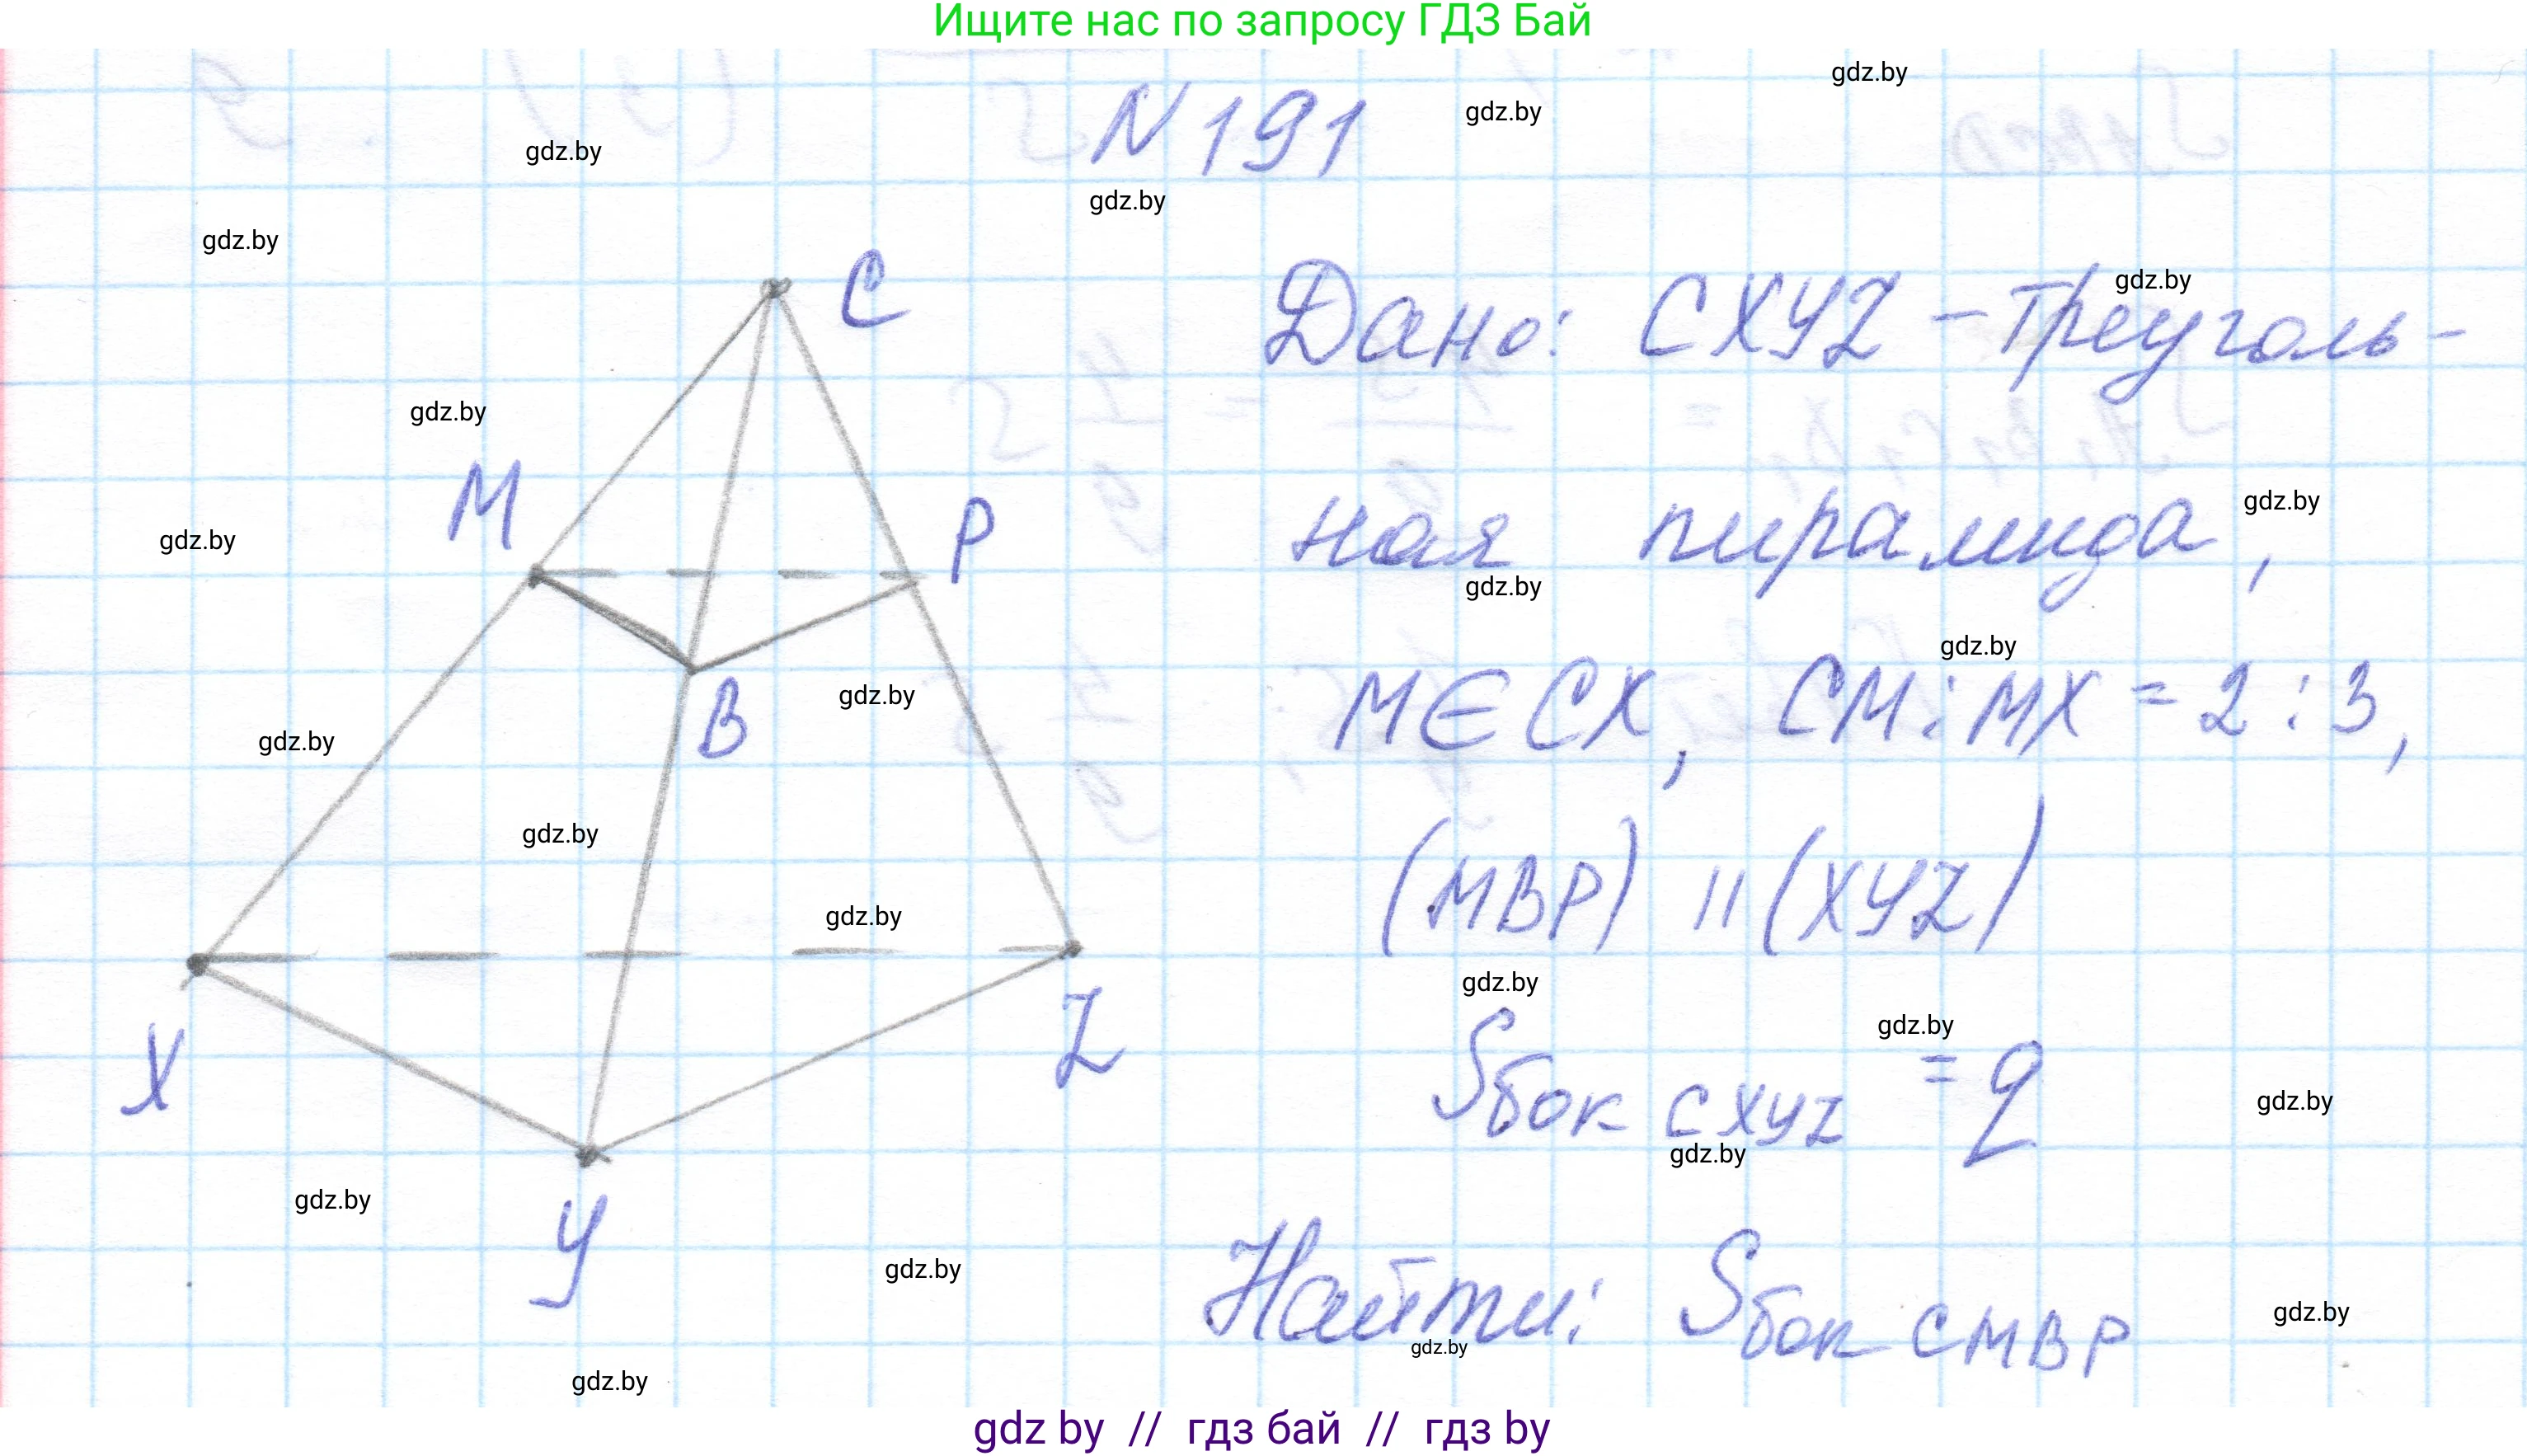 Ищите нас по запросу ГДЗ Бай
gdz.by
gdz.by
N 191
gdz.by
gdz.by
gdz.by
C
Дано: CXYZ – треуголь-
gdz.by
gdz.by
M
P
ная пирамида,
gdz.by
gdz.by
gdz.by
gdz.by
B
gdz.by
M∈CX, CM:MX = 2:3,
gdz.by
gdz.by
(MBP) || (XYZ)
gdz.by
gdz.by
X
Z
Sбок CXYZ = Q
gdz.by
gdz.by
gdz.by
gdz.by
Y
gdz.by
Найти: Sбок CMBP
gdz.by
gdz.by
gdz.by
gdz by // гдз бай // гдз by